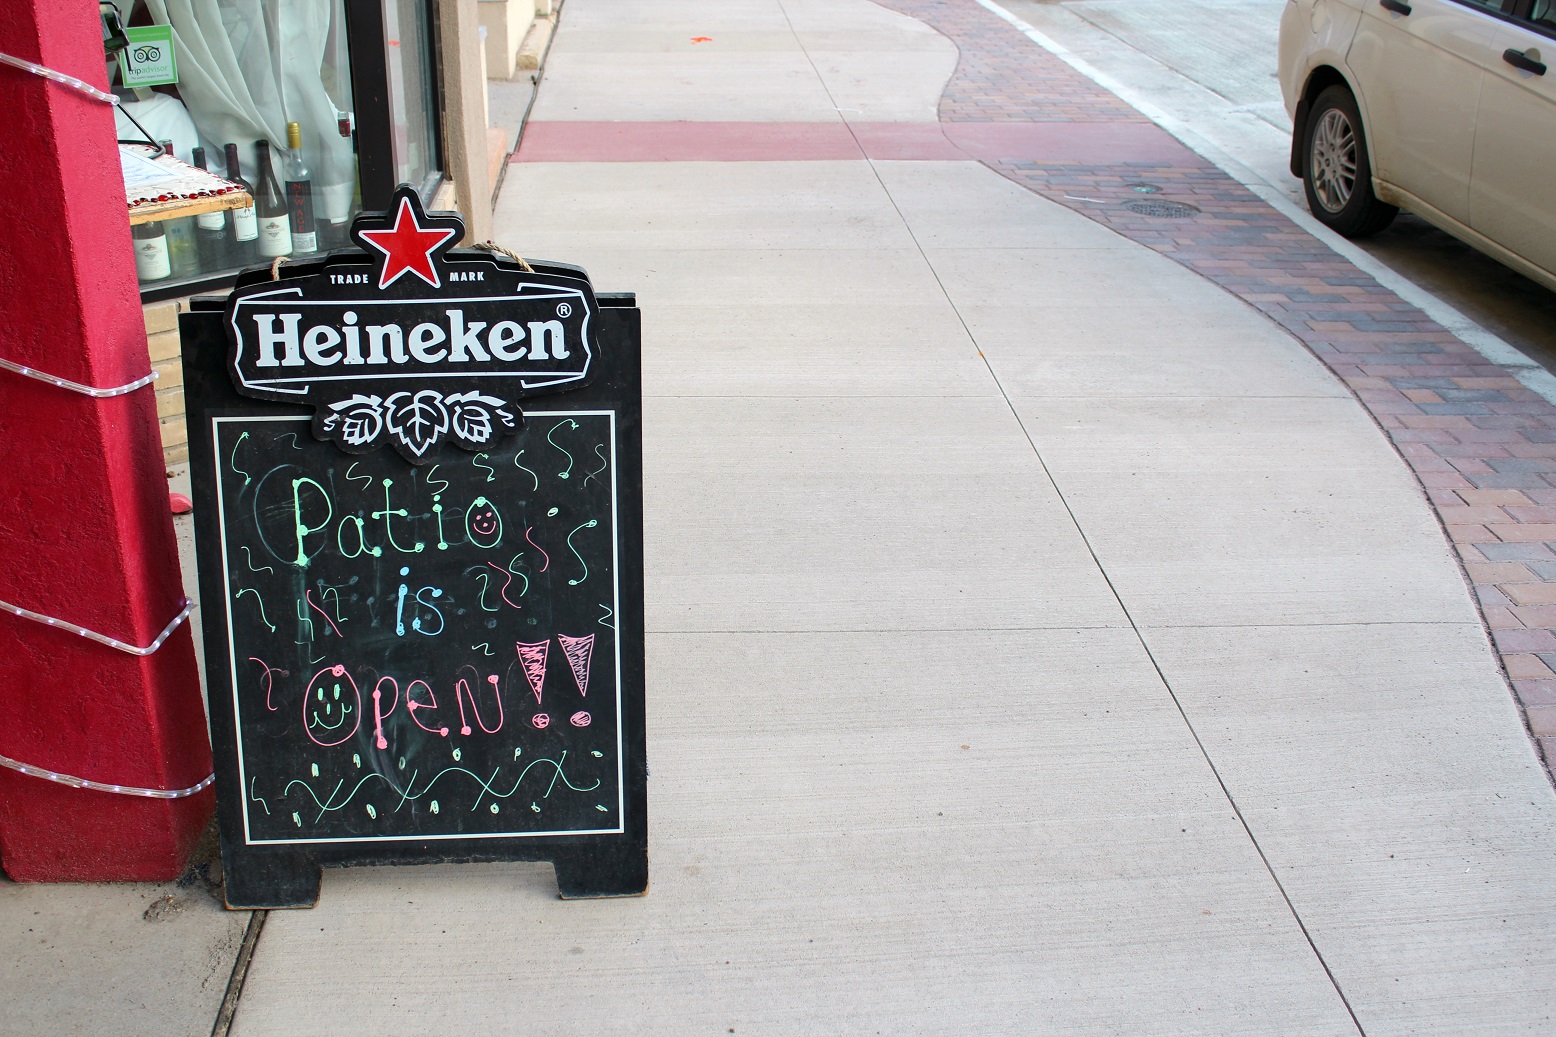 tripadvisor
TRADE MARK
Heineken®
Patio
is
Open!!